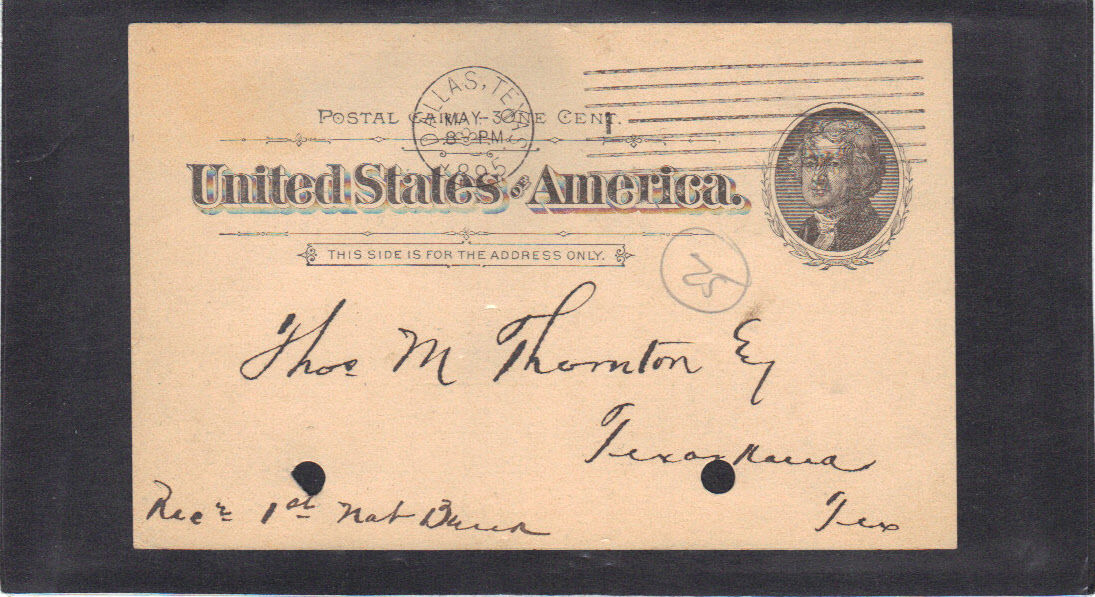 POSTAL CARD—ONE CENT.
DALLAS, TEXAS
MAY-3
8-PM
1895
1
United States OF America.
THIS SIDE IS FOR THE ADDRESS ONLY.
25
Thos M Thornton Esq
Texarkana
Tex
Recr 1st Nat Bank